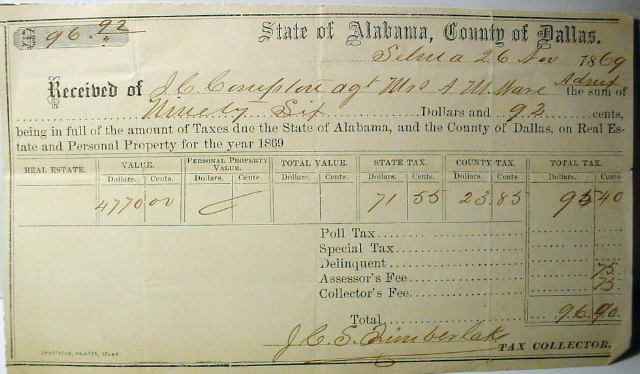 $ 96.92
State of Alabama, County of Dallas.
Selma 26 Nov 1869
Received of J. C. Compton agt Mrs A. M. Ware Admix the sum of
Ninety Six Dollars and 92 cents,
being in full of the amount of Taxes due the State of Alabama, and the County of Dallas, on Real Es-
tate and Personal Property for the year 1869
REAL ESTATE. VALUE. PERSONAL PROPERTY VALUE. TOTAL VALUE. STATE TAX. COUNTY TAX. TOTAL TAX.
Dollars. Cents. Dollars. Cents. Dollars. Cents. Dollars. Cents. Dollars. Cents. Dollars. Cents.
4770 00 71 55 23.85 95 40
Poll Tax
Special Tax
Delinquent
Assessor's Fee 75
Collector's Fee 75
Total 96.90
J. C. S. Timberlake TAX COLLECTOR.
ARMSTRONG, PRINTER, SELMA.